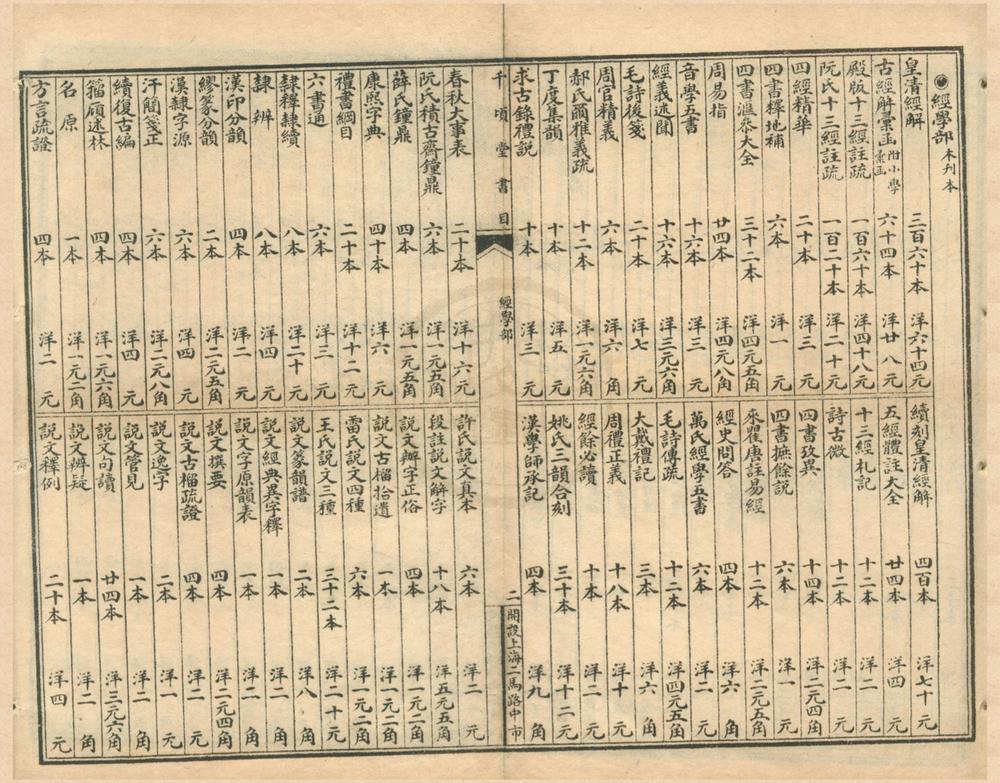 ◉經學部 木刊本
皇清經解 三百六十本 洋六十四元
古經解彙函 附小學彙函 六十四本 洋廿八元
殿版十三經註疏 一百六十本 洋四十八元
阮氏十三經註疏 一百二十本 洋二十元
四經精華 二十本 洋三元
四書釋地補 六本 洋一元
四書滙叅大全 三十二本 洋四元五角
周易指 廿四本 洋四元八角
音學五書 十六本 洋三元
經義述聞 十六本 洋三元六角
毛詩後箋 二十本 洋七元
周官精義 六本 洋六角
郝氏爾雅義疏 十二本 洋一元六角
丁度集韻 十本 洋五元
求古錄禮說 十本 洋三元
續刻皇清經解 四百本 洋七十元
五經體註大全 廿四本 洋四元
十三經札記 十二本 洋二元
詩古微 十二本 洋一元
四書攷異 十四本 洋二元四角
四書摭餘說 六本 洋一元
來瞿唐註易經 十二本 洋二元五角
經史問答 四本 洋六角
萬氏經學五書 六本 洋二元
毛詩傳疏 十二本 洋四元五角
大戴禮記 三本 洋六角
周禮正義 十八本 洋十元
經餘必讀 十本 洋二元
姚氏三韻合刻 三十本 洋十二元
漢學師承記 四本 洋九角
千頃堂書目
經學部
二
開設上海二馬路中市
春秋大事表 二十本 洋十六元
阮氏積古齋鐘鼎 六本 洋一元五角
薛氏鐘鼎 四本 洋一元五角
康熙字典 四十本 洋六元
禮書綱目 二十本 洋十二元
六書通 六本 洋三元
隸釋隸續 八本 洋二十元
隸辨 八本 洋四元
漢印分韻 四本 洋二元
繆篆分韻 二本 洋二元五角
漢隸字源 六本 洋四元
汗簡箋正 六本 洋二元八角
續復古編 四本 洋四元
籀廎述林 四本 洋一元六角
名原 一本 洋一元二角
方言疏證 四本 洋二元
許氏說文真本 六本 洋二元
段註說文解字 十八本 洋五元五角
說文辨字正俗 四本 洋一元二角
說文古榴拾遺 一本 洋一元二角
雷氏說文四種 六本 洋一元二角
王氏說文三種 三十二本 洋二十元
說文篆韻譜 二本 洋八角
說文經典異字釋 一本 洋二角
說文字原韻表 一本 洋二角
說文撰要 四本 洋二元四角
說文古榴疏證 四本 洋二元
說文逸字 二本 洋一元
說文管見 一本 洋二角
說文句讀 廿四本 洋三元六角
說文辨疑 一本 洋二角
說文釋例 二十本 洋四元